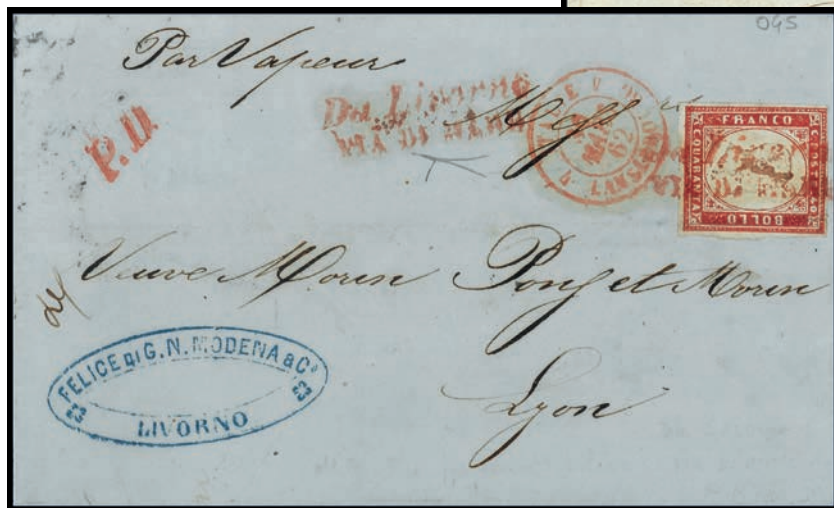 045
Par Vapeur
P.D.
Da Livorno
VIA DI MARE
MAR
62
FRANCO
C. POSTE 40
QUARANTA
BOLLO
Veuve Morin Pons et Morin
Lyon
FELICE DI G. N. MODENA & Cº
LIVORNO